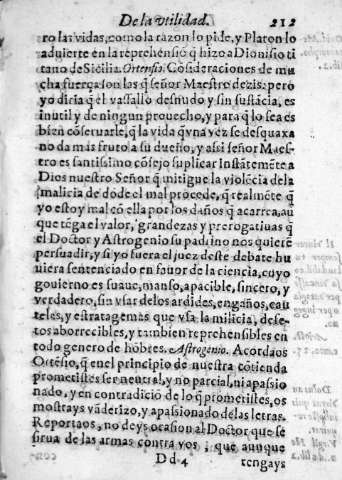 De la vtilidad. 212
ro las vidas, como la razon lo pide, y Platon lo
aduierte en la reprehẽsiõ q̃ hizo a Dionisio ti
rano de Sicilia. Ortensio. Cõsideraciones de mu
cha fuerça son las q̃ señor Maestro dezis: pero
yo diria q̃ el vassallo desnudo y sin sustãcia, es
inutil y de ningun prouecho, y para q̃ lo sea es
bien cõseruarle, q̃ la vida q̃ vna vez se desquaxa
no da mas fruto a su dueño, y assi señor Maes-
tro es santissimo cõsejo suplicar Instãtemẽte a
Dios nuestro Señor q̃ mitigue la violẽcia de la
malicia de dõde el mal procede, q̃ realmẽte q̃
yo estoy mal cõ ella por los daños q̃ acarrea, au
que tẽga el valor, grandezas y prerogatiuas q̃
el Doctor y Astrogenio su padrino nos quierẽ
persuadir, y si yo fuera el juez deste debate hu
uiera sentenciado en fauor de la ciencia, cuyo
gouierno es suaue, manso, apacible, sincero, y
verdadero, sin vsar de los ardides, engaños, cau
teles, y estratagemas que vsa la milicia, defe-
tos aborrecibles, y tambien reprehensibles en
todo genero de hõbres. Astrogenio. Acordaos
Ortẽsio, q̃ en el principio de nuestra cõtienda
prometistes ser neutral, y no parcial, ni apassio
nado, y en contradiciõ de lo q̃ prometistes, os
mostrays vãderizo, y apasionado de las letras.
Reportaos, no deys ocasion al Doctor que se
sirua de las armas contra vos, que aunque
Dd4 tengays